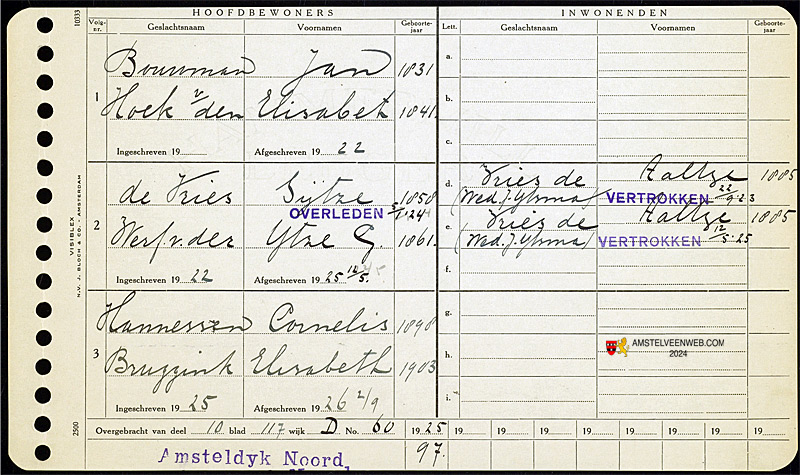 HOOFDBEWONERS
Volg-nr. Geslachtsnaam Voornamen Geboorte-jaar
1 Bouwman Jan 1831
Hoek v/den Elisabet 1841.
Ingeschreven 19 Afgeschreven 19 22
2 de Vries Sijtze 1858
OVERLEDEN 5/1-24
Werf v. der Ytze G. 1861.
Ingeschreven 19 22 Afgeschreven 19 25 12/5.
3 Hannessen Cornelis 1898
Bruggink Elisabeth 1903
Ingeschreven 19 25 Afgeschreven 19 26 2/9
INWONENDEN
Lett. Geslachtsnaam Voornamen Geboorte-jaar
a.
b.
c.
d. Vries de Aaltze 1885
(Wed. J. Ytsma) VERTROKKEN 22/9-23
e. Vries de Aaltze 1885
(Wed. J. Ytsma) VERTROKKEN 12/5-25
f.
g.
h.
i.
AMSTELVEENWEB.COM
2024
Overgebracht van deel 10 blad 117 wijk D No. 60 1925 19 19 19 19 19 19 19 19
Amsteldyk Noord, 97.
10333
VISIBLEX
N.V. J. BLOCH & CO. AMSTERDAM
2500